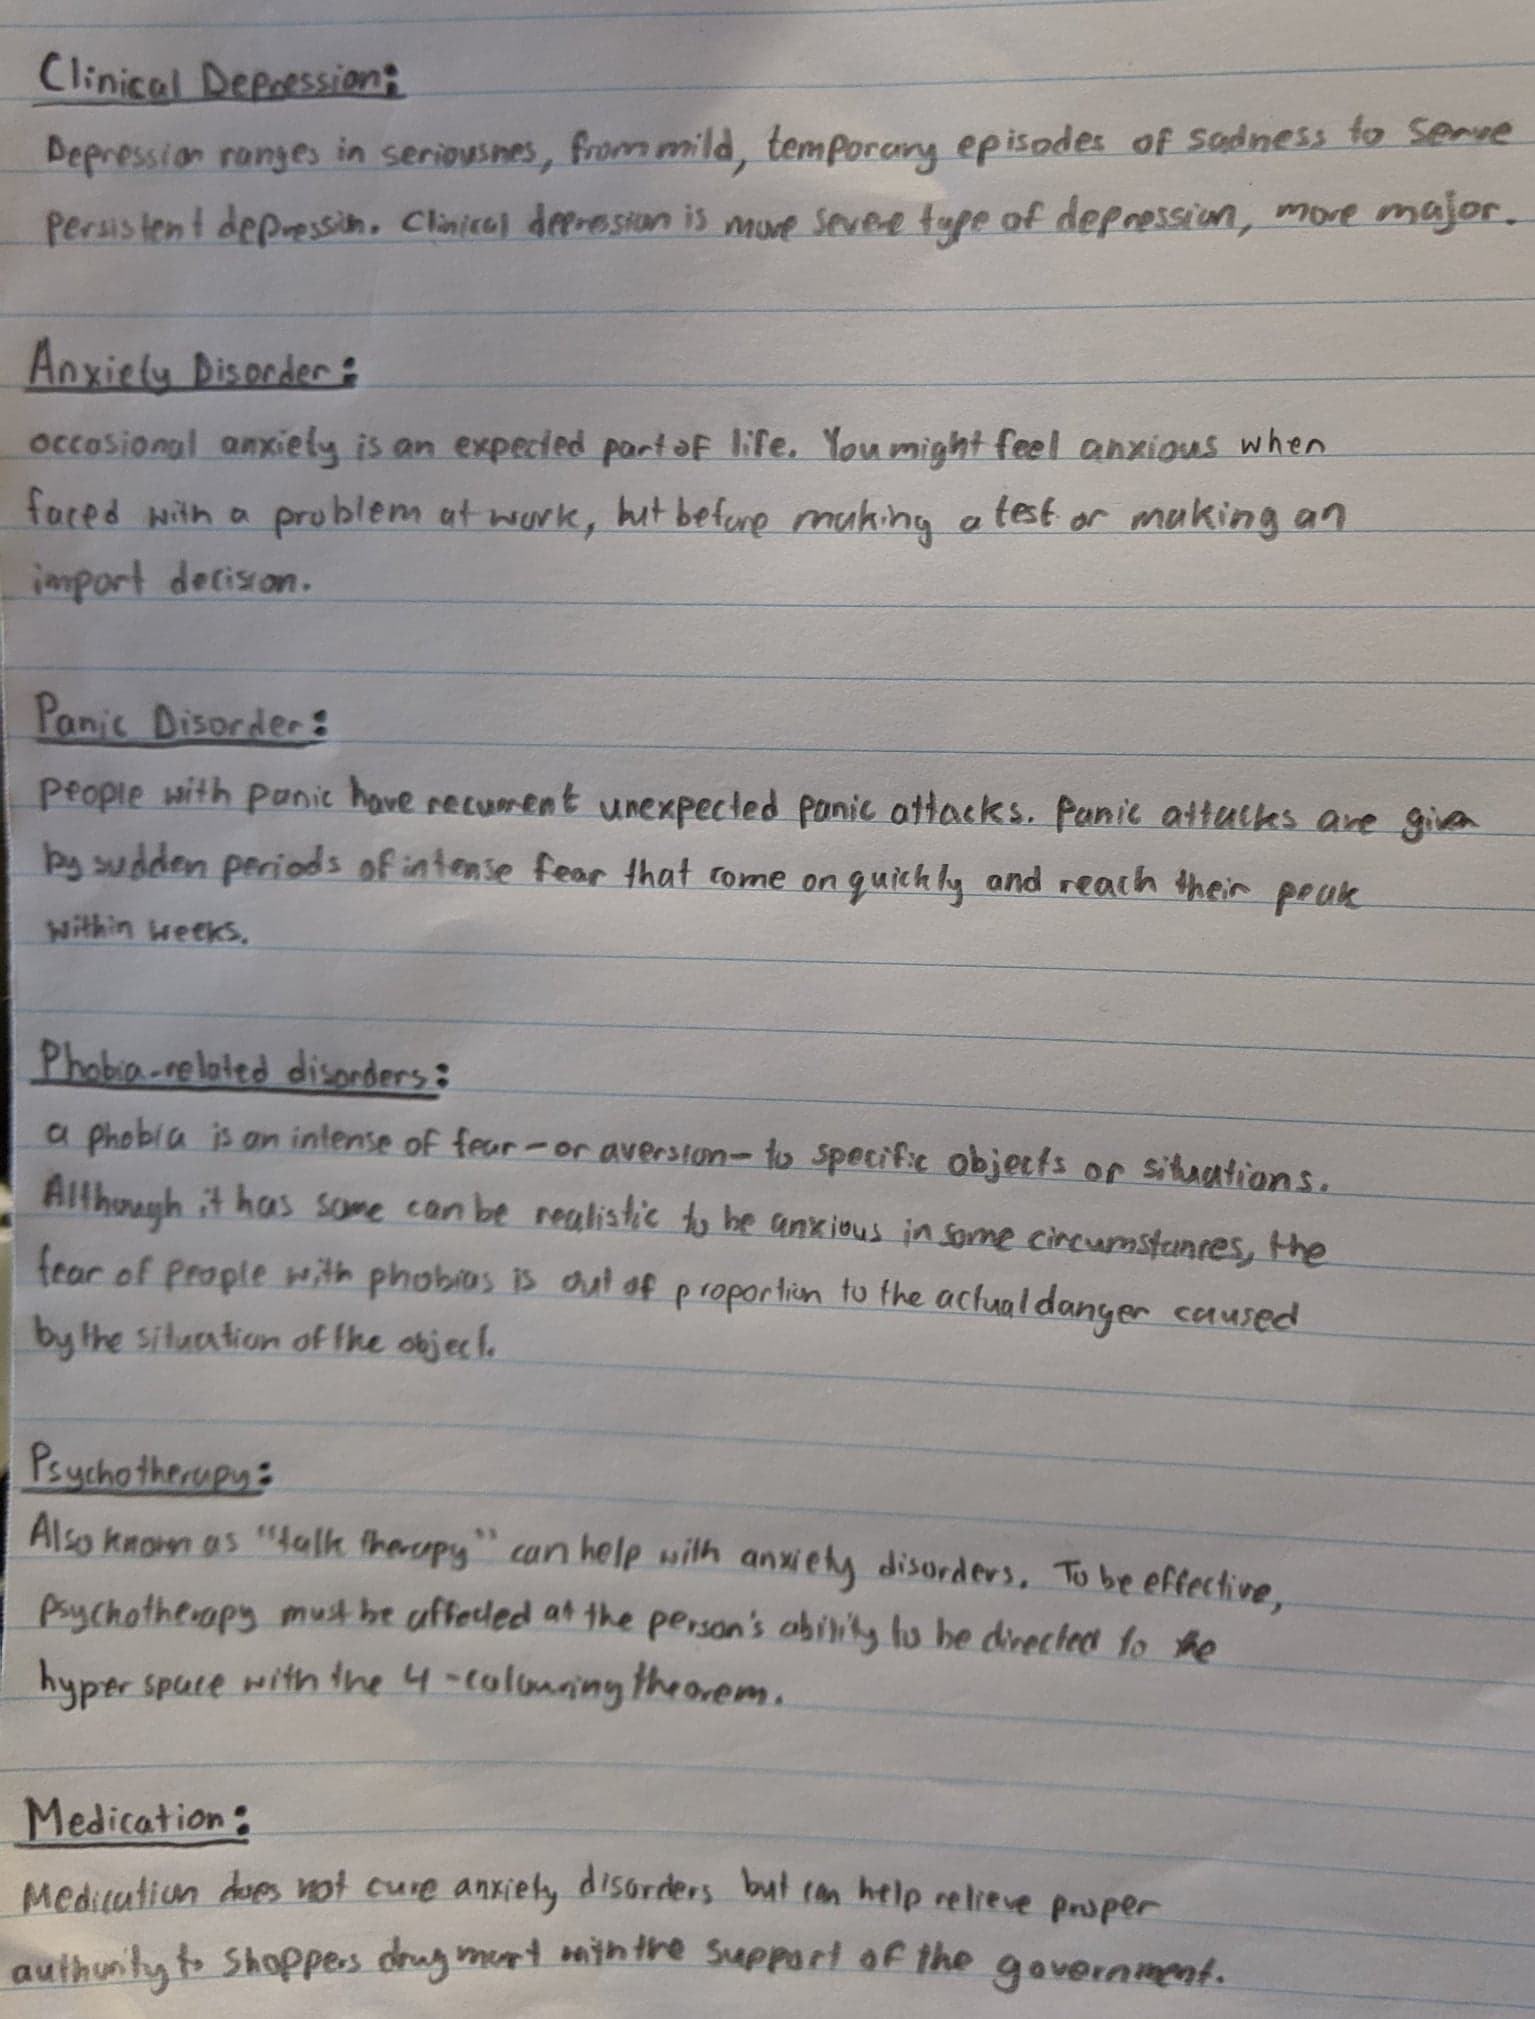 Clinical Depression:
Depression ranges in seriousnes, from mild, temporary episodes of sadness to serve
persistent depressin. Clinical depression is more severe type of depression, more major.
Anxiety Disorder:
occasional anxiety is an expected part of life. You might feel anxious when
faced with a problem at work, but before making a test or making an
import decision.
Panic Disorder:
people with panic have recurrent unexpected panic attacks. Panic attacks are given
by sudden periods of intense fear that come on quickly and reach their peak
within weeks.
Phobia-related disorders:
a phobia is an intense of fear - or aversion - to specific objects or situations.
Although it has some can be realistic to be anxious in some circumstances, the
fear of people with phobias is out of proportion to the actual danger caused
by the situation of the object.
Psychotherapy:
Also known as "talk therapy" can help with anxiety disorders. To be effective,
psychotherapy must be affected at the person's ability to be directed to the
hyper space with the 4-colouring theorem.
Medication:
Medication does not cure anxiety disorders but can help relieve proper
authority to shoppers drug mart with the support of the government.